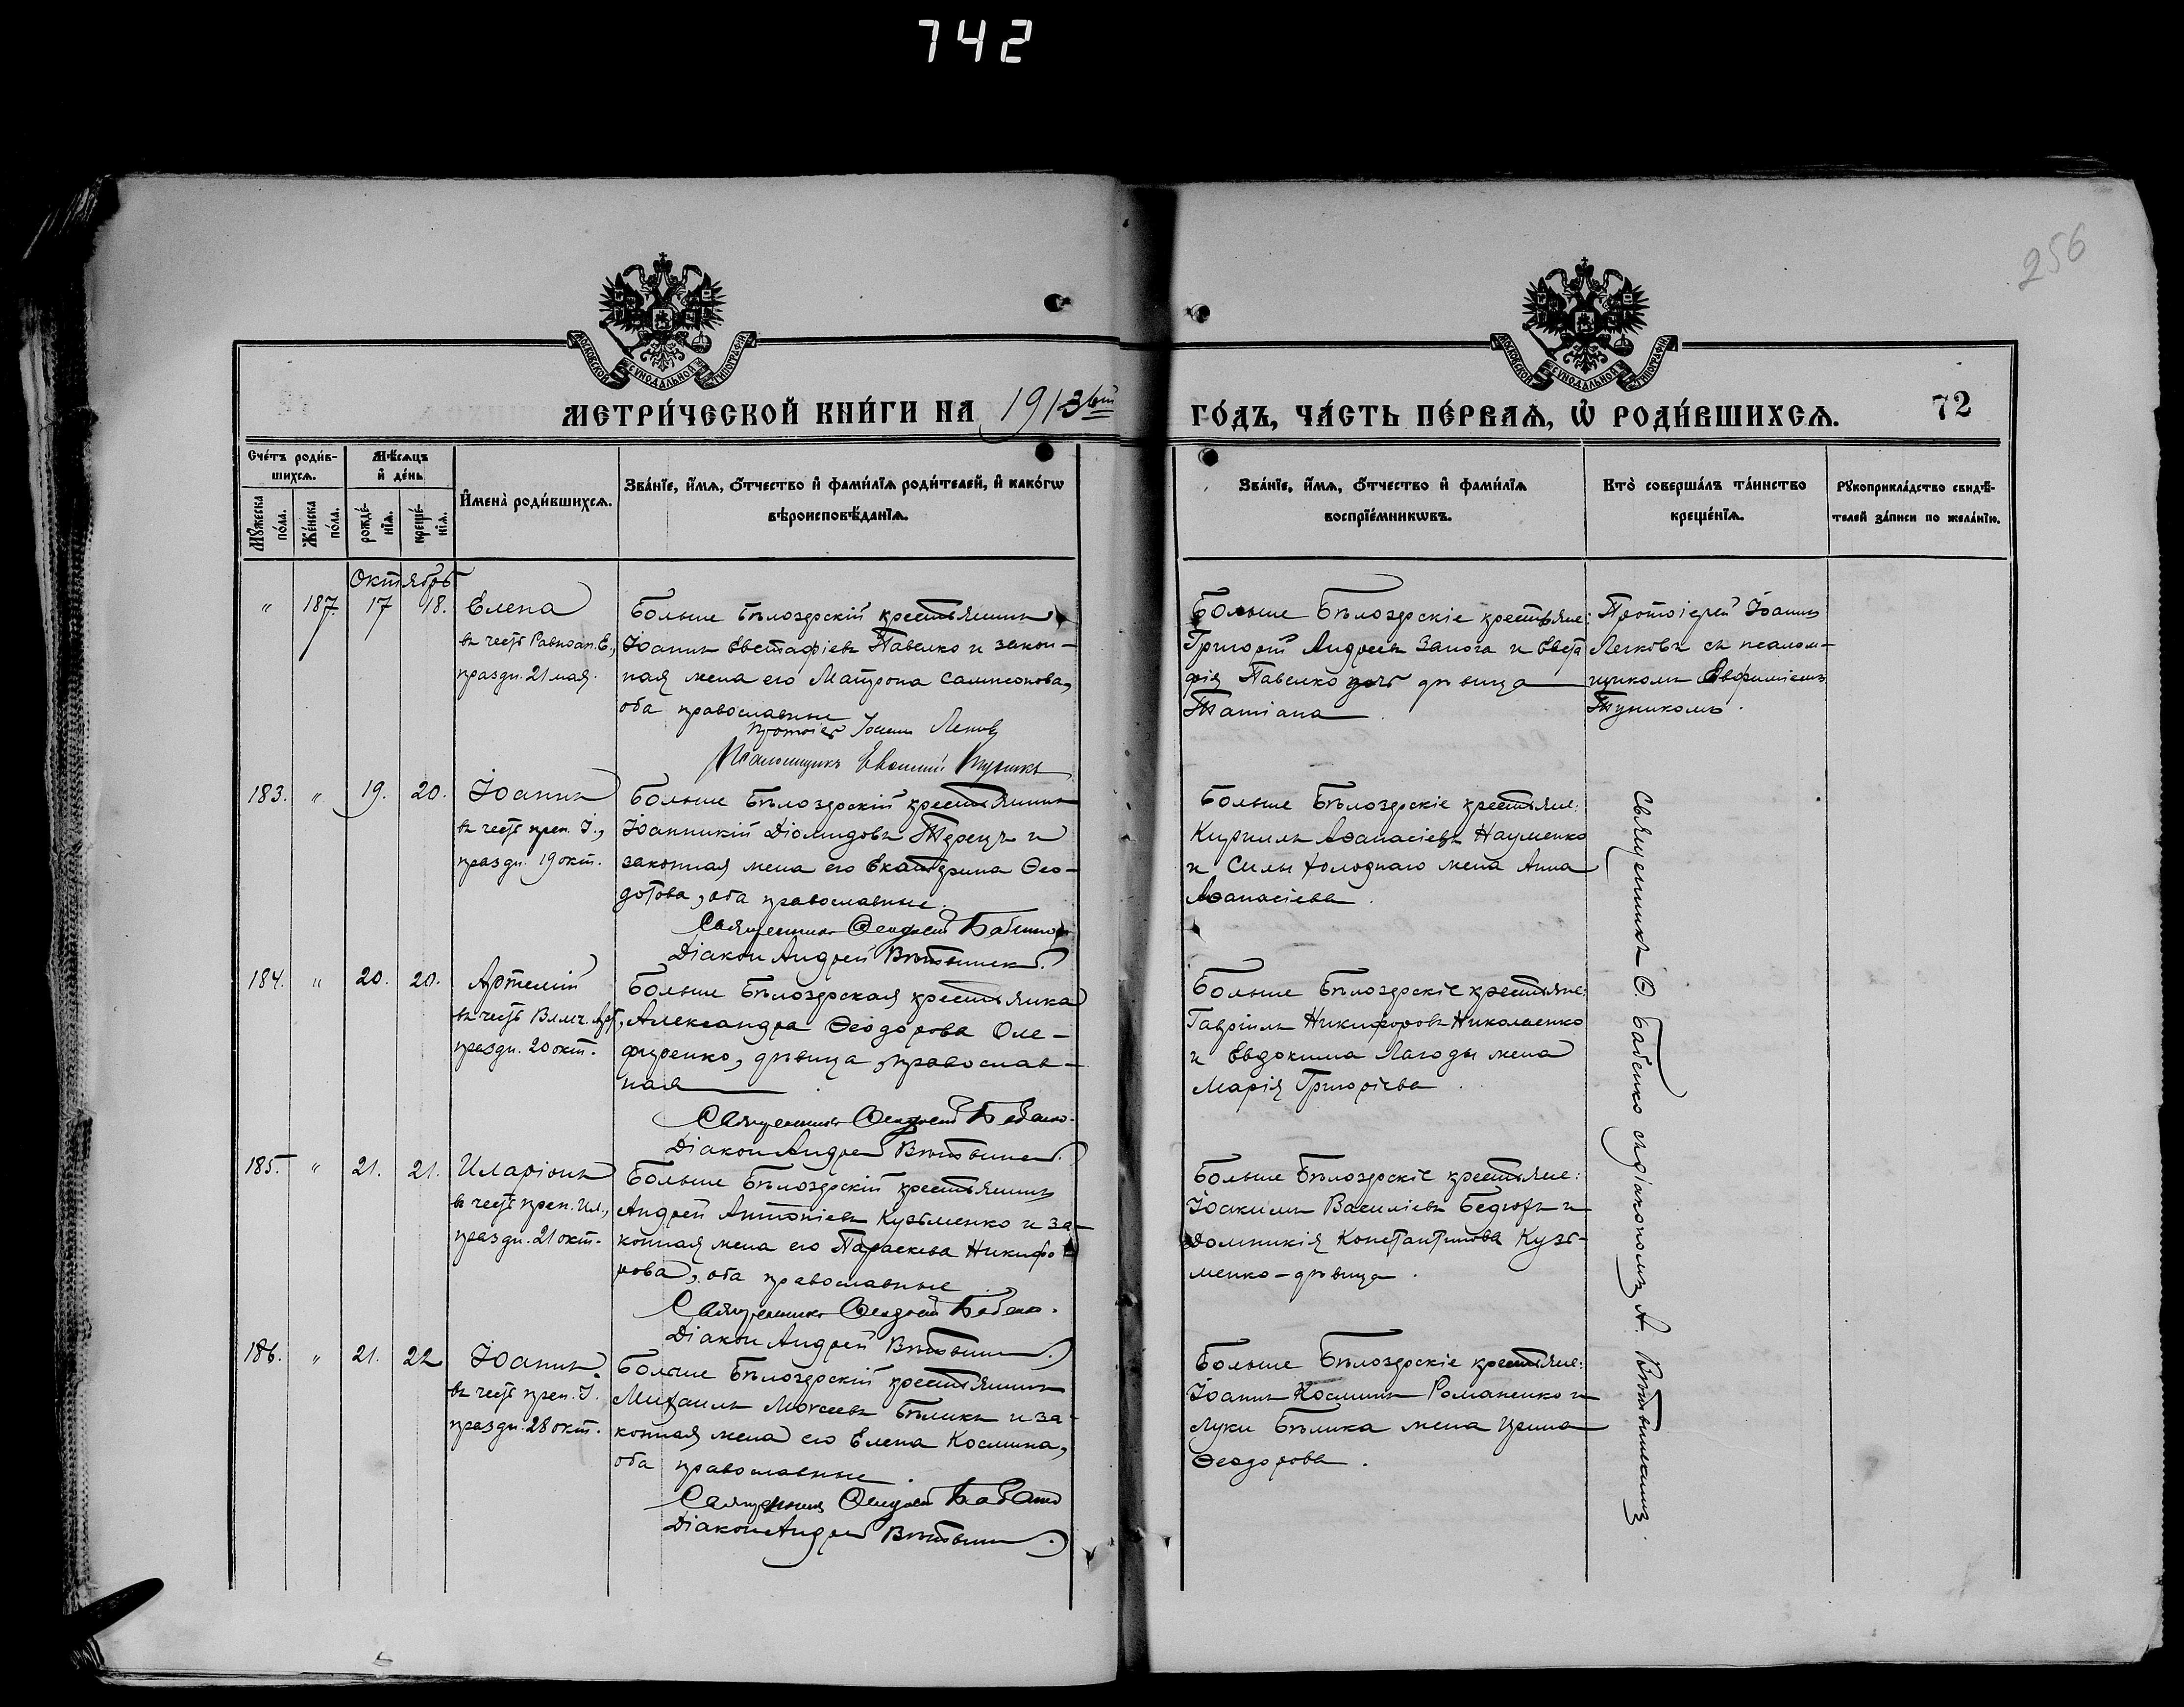 742
256
МОСКОВСКОЙ СУНОДАЛЬНОЙ ТИПОГРАФІИ
МОСКОВСКОЙ СУНОДАЛЬНОЙ ТИПОГРАФІИ
МЕТРИ́ЧЕСКОЙ КНИ́ГИ НА 1913 ГО́ДЪ, ЧА́СТЬ ПЕ́РВАѦ, Ѡ РОДИ́ВШИХСѦ.
72
Сче́тъ роди́в-
шихсѧ.
Мꙋ́жеска по́ла.
Же́нска по́ла.
Мѣ́сѧцъ
и҆ де́нь
рожде́-нїѧ.
креще́-нїѧ.
И҆мена̀ роди́вшихсѧ.
Зва́нїе, и҆́мѧ, ѻ҆́тчество и҆ фами́лїѧ роди́телей, и҆ како́гѡ
вѣроисповѣ́данїѧ.
Зва́нїе, и҆́мѧ, ѻ҆́тчество и҆ фами́лїѧ
воспрїе́мникѡвъ.
Кто̀ соверша́лъ та́инство
креще́нїѧ.
Рꙋкоприкла́дство свидѣ́-
телей за́писи по жела́нїю.
Октябрь
" 187. 17 18. Елена
въ честь Равноап. Е.,
праздн. 21 мая.
Больше Бѣлозерскій крестьянинъ
Іоаннъ Евстафіевъ Павелко и закон-
ная жена его Матрона Сампсонова,
оба православные
Протоіер Іоаннъ
Псаломщикъ Евфимій Туникъ
Больше Бѣлозерскіе крестьяне:
Григорій Андреевъ Запога и Евста
фія Павелко дочь дѣвица
Татіана.
Протоіерей Іоаннъ
съ псалом-
щикомъ Евфиміемъ
Туникомъ.
183. " 19. 20. Іоаннъ
въ честь преп. І.,
праздн. 19 окт.
Больше Бѣлозерскій крестьянинъ
Іоанникій Діомидовъ Терещ и
законная жена его Екатерина Ѳео-
дотова, оба православные.
Священникъ Ѳеодосій Бабенко
Діаконъ Андрей
Больше Бѣлозерскіе крестьяне:
Кириллъ Аѳанасіевъ Науменко
и Силы Холоднаго жена Анна
Аѳанасіева.
Священникъ Ѳ. Бабенко съ діакономъ А.
184. " 20. 20. Артемій
въ честь Влмч. Арт.,
праздн. 20 окт.
Больше Бѣлозерская крестьянка
Александра Ѳеодорова Оле-
фиренко, дѣвица, православ-
ная
Священникъ Ѳеодосій Бабенко.
Діаконъ Андрей
Больше Бѣлозерскіе крестьяне:
Гавріилъ Никифоровъ Николаенко
и Евдокима Лагоды жена
Марія Григоріева.
185. " 21. 21. Иларіонъ
въ честь преп. Ил.,
праздн. 21 окт.
Больше Бѣлозерскій крестьянинъ
Андрей Антоніевъ Кузьменко и за-
конная жена его Параскева Никифо
рова, оба православные
Священникъ Ѳеодосій Бабенко.
Діаконъ Андрей
Больше Бѣлозерскіе крестьяне:
Іоакимъ Василіевъ и
Домникія Константинова Кузь-
менко - дѣвица.
186. " 21. 22 Іоаннъ
въ честь преп. І.
праздн. 28 окт.
Больше Бѣлозерскій крестьянинъ
Михаилъ Моѵсеевъ Бѣликъ и за-
конная жена его Елена Космина,
оба православные.
Священникъ Ѳеодосій Бабенко
Діаконъ Андрей
Больше Бѣлозерскіе крестьяне:
Іоаннъ Косминъ Романенко и
Луки Бѣлика жена Ирина
Ѳеодорова.